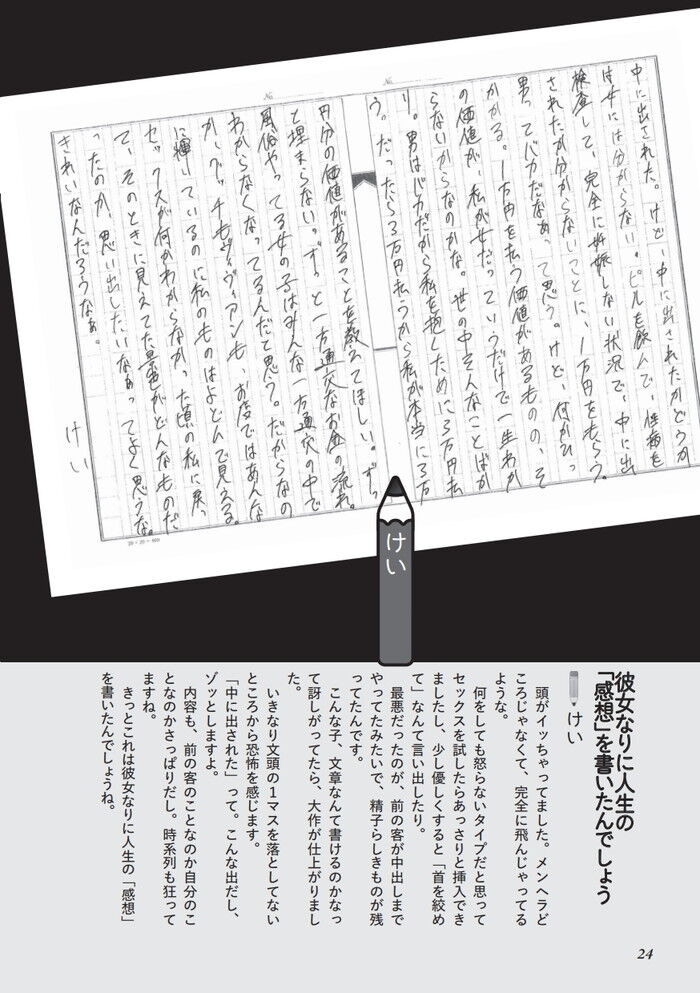 中に出された。けど、中に出されたかどうか
は女には分からない。ピルを飲んで、性病を
検査して、完全に妊娠しない状況で、中に出
されたか分からないことに、1万円をもらう。
男ってバカだなあって思う。けど、何がひっ
かかる。1万円を払う価値があるものの、そ
の価値が、私が女だっていうだけで一生わか
らないからなのかな。世の中そんなことばか
り。男はバカだから私を抱くために3万円払
う。だったら3万円払うから私が本当に3万
円分の価値があることを教えてほしい。ずっ
と埋まらない。ずっと一方通穴なお金の流れ。
風俗やってる女の子はみんな一方通穴の中で
わからなくなってるんだと思う。だからなの
か、グッチもヴィヴィアンも、お店ではあんな
に輝いているのに私のものはよどんで見える。
セックスが何かわからなかった頃の私に戻っ
て、そのときに見えてた景色がどんなものだ
ったのか、思い出したいなぁってよく思うな。
きれいなんだろうなぁ。
けい
20×20=400
けい
彼女なりに人生の
「感想」を書いたんでしょう
けい
頭がイッちゃってました。メンヘラど
ころじゃなくて、完全に飛んじゃってる
ような。
何をしても怒らないタイプだと思って
セックスを試したらあっさりと挿入でき
ましたし、少し優しくすると「首を絞め
て」なんて言い出したり。
最悪だったのが、前の客が中出しまで
やってたみたいで、精子らしきものが残
ってたんです。
こんな子、文章なんて書けるのかなっ
て訝しがってたら、大作が仕上がりまし
た。
いきなり文頭の1マスを落としてない
ところから恐怖を感じます。
「中に出された」って。こんな出だし、
ゾッとしますよ。
内容も、前の客のことなのか自分のこ
となのかさっぱりだし。時系列も狂って
ますね。
きっとこれは彼女なりに人生の「感想」
を書いたんでしょうね。
24